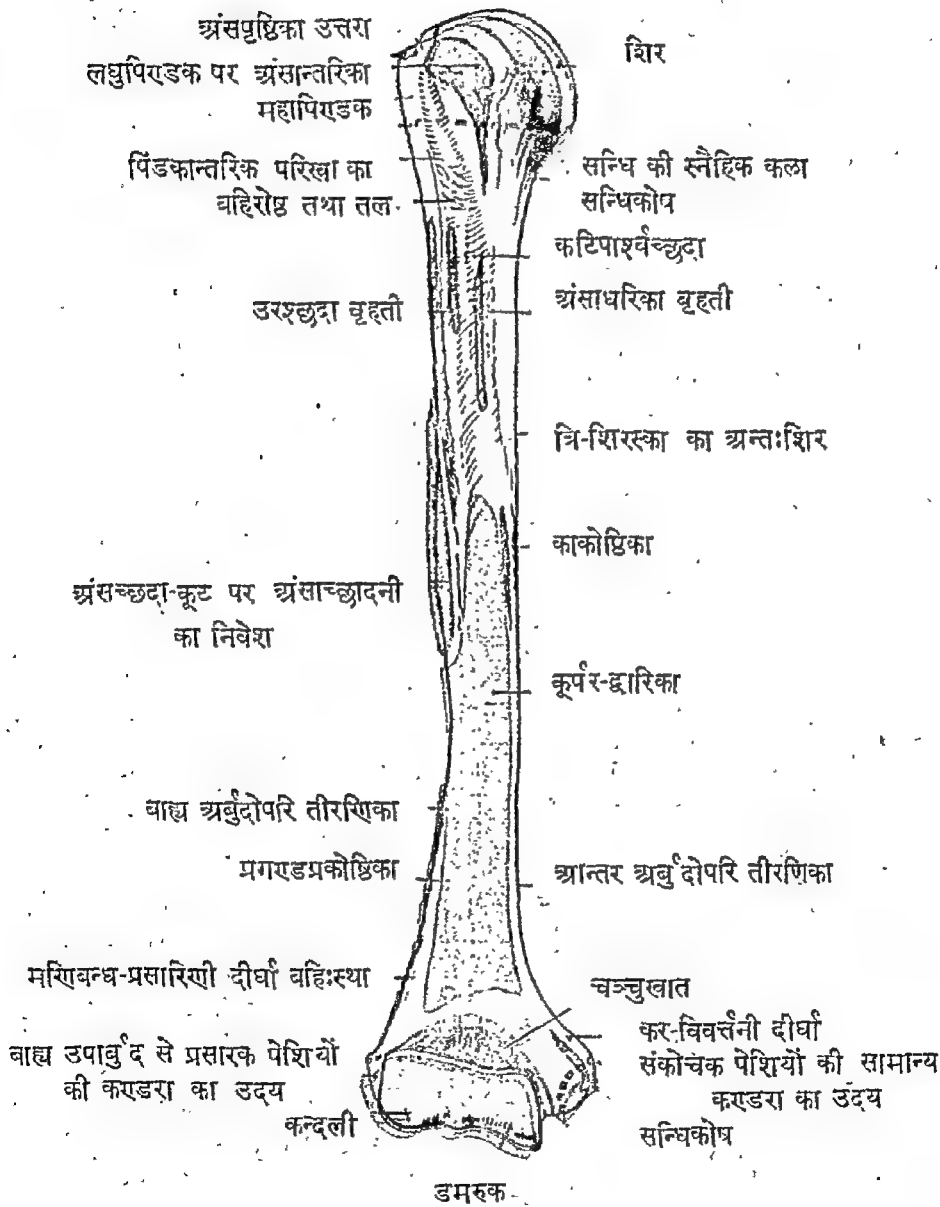 अंसपृष्ठिका उत्तरा
लघुपिण्डक पर अंसान्तरिका
महापिण्डक
पिंडकान्तरिक परिखा का
बहिरोष्ठ तथा तल
उरश्छदा वृहती
अंसच्छदा-कूट पर अंसाच्छादनी
का निवेश
बाह्य अर्बुदोपरि तीरणिका
प्रगण्डप्रकोष्ठिका
मणिबन्ध-प्रसारिणी दीर्घा बहिःस्था
बाह्य उपार्बुद से प्रसारक पेशियों
की कण्डरा का उदय
कन्दली
शिर
सन्धि की स्नैहिक कला
सन्धिकोष
कटिपार्श्वच्छदा
अंसाधरिका वृहती
त्रि-शिरस्का का अन्तःशिर
काकोष्ठिका
कूर्पर-द्वारिका
आन्तर अर्बुदोपरि तीरणिका
चञ्चुखात
कर-विवर्त्तनी दीर्घा
संकोचक पेशियों की सामान्य
कण्डरा का उदय
सन्धिकोष
डमरुक